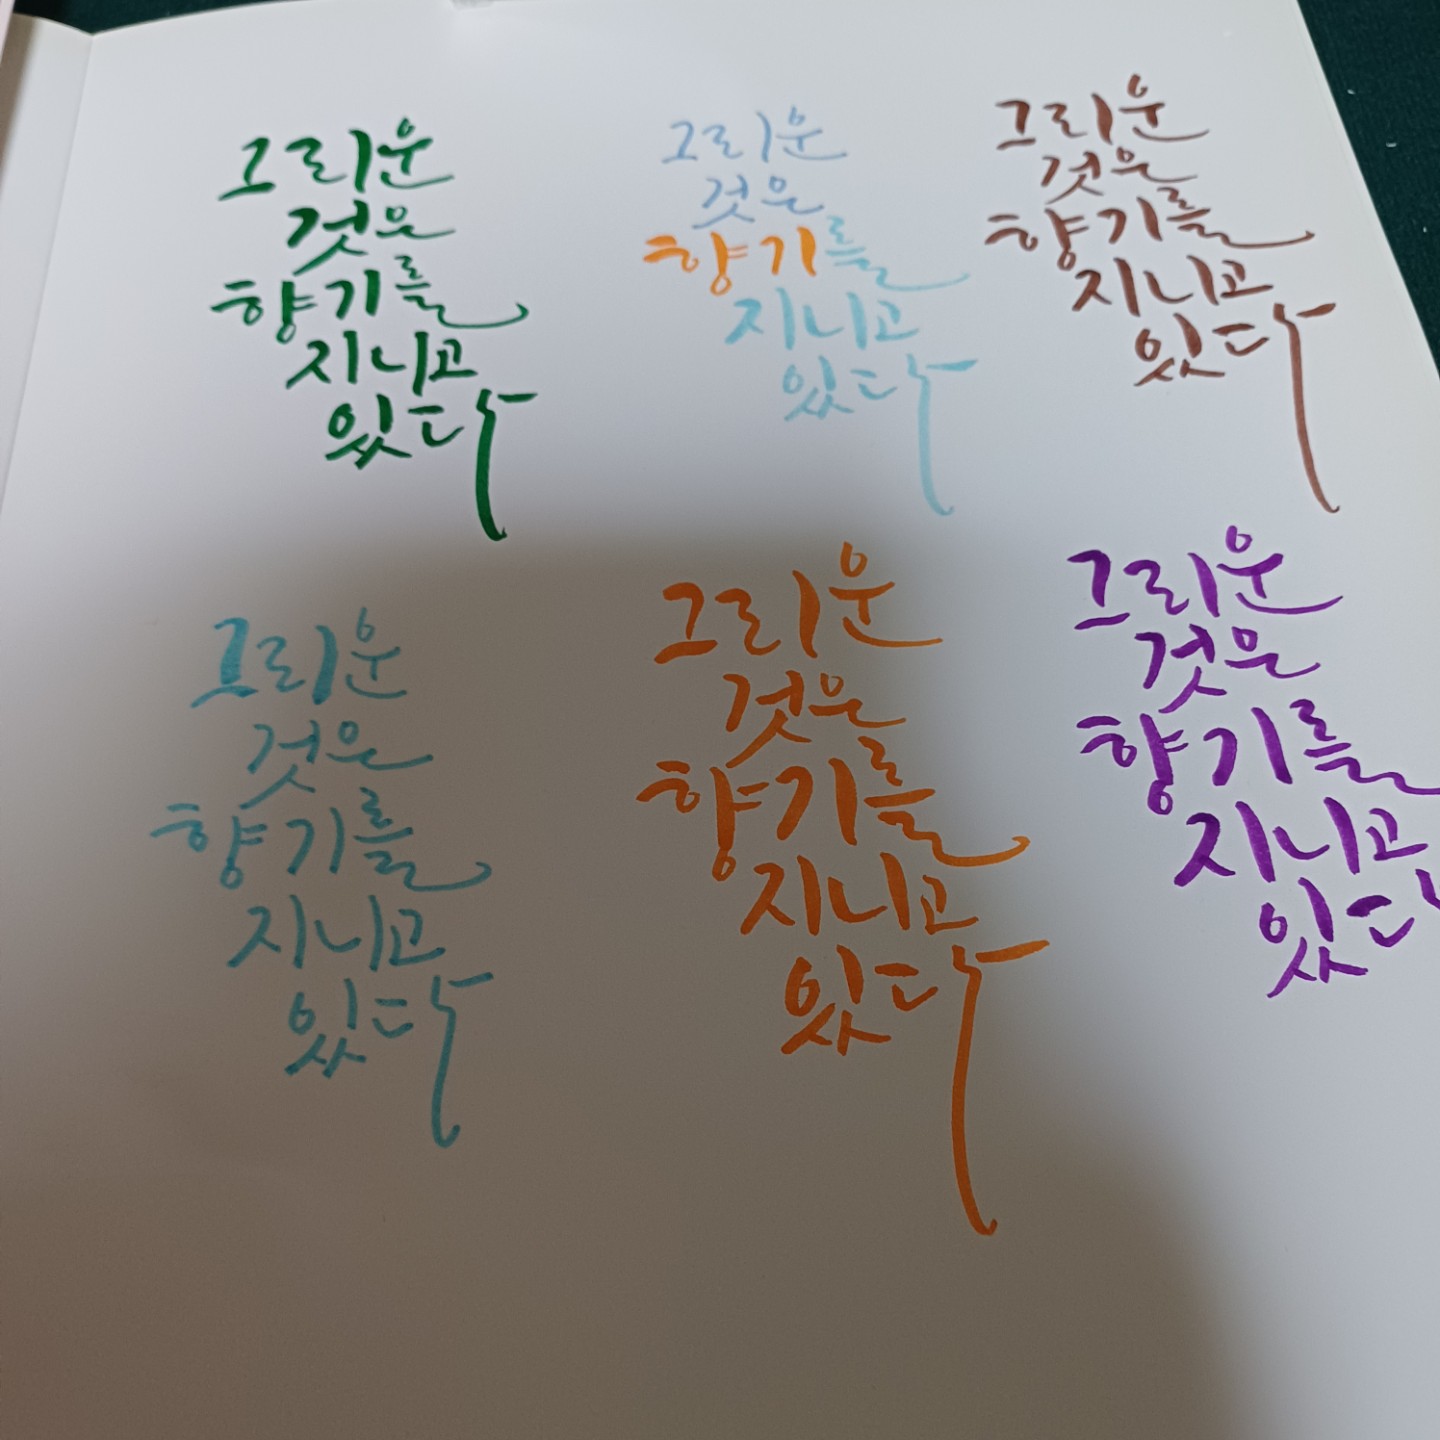 그리운
것은
향기를
지니고
있다
그리운
것은
향기를
지니고
있다
그리운
것은
향기를
지니고
있다
그리운
것은
향기를
지니고
있다
그리운
것은
향기를
지니고
있다
그리운
것은
향기를
지니고
있다